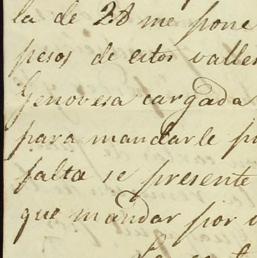 la de 28 me pone
pesos de estos valles
Genovesa cargada
para mandarle p
falta se presente
que mandar por